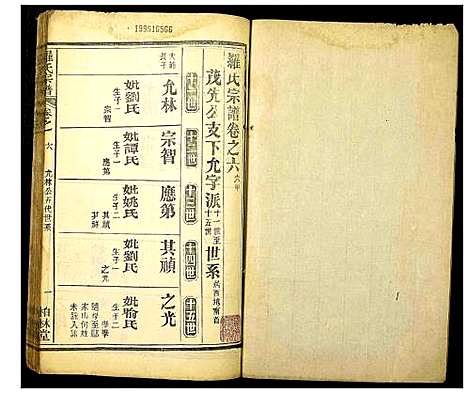 199616566
羅氏宗譜卷之六
茂先公支下允字派十一世至十五世世系
十一世
大 長子
允林
妣劉氏
生子一
宗智
十二世
宗智
妣譚氏
生子一
應第
十三世
應第
妣姚氏
生子二
其禎
十四世
其禎
妣劉氏
生子一
之光
十五世
之光
妣喻氏
生子二
羅氏宗譜
卷之
六
允林公五代世系
一
柏林堂